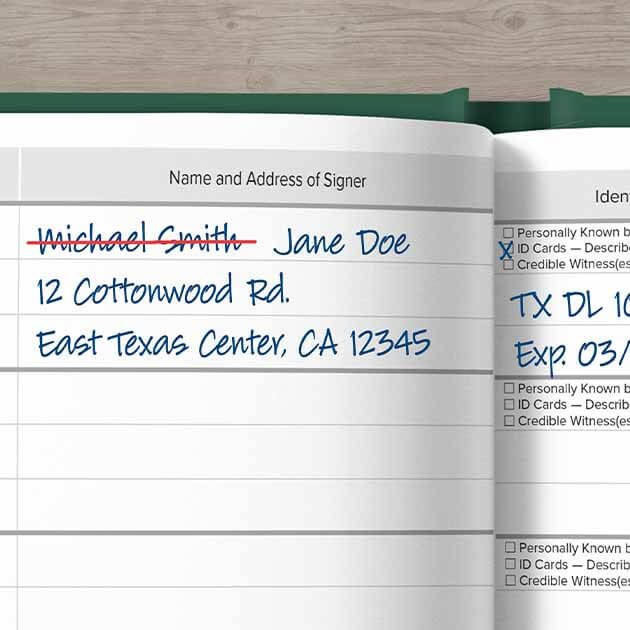 Name and Address of Signer
Michael Smith Jane Doe
12 Cottonwood Rd.
East Texas Center, CA 12345
Iden
Personally Known b
X ID Cards — Describ
Credible Witness(es
TX DL 10
Exp. 03/
Personally Known b
ID Cards — Describ
Credible Witness(es
Personally Known b
ID Cards — Describ
Credible Witness(es